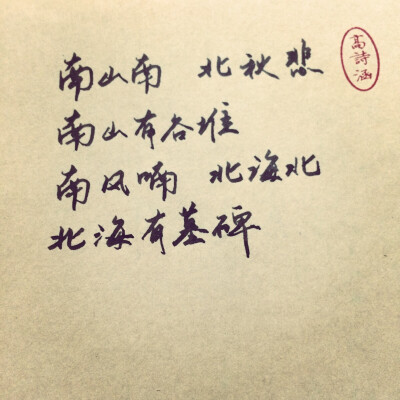 南山南 北秋悲
南山有谷堆
南风喃 北海北
北海有墓碑
高詩涵